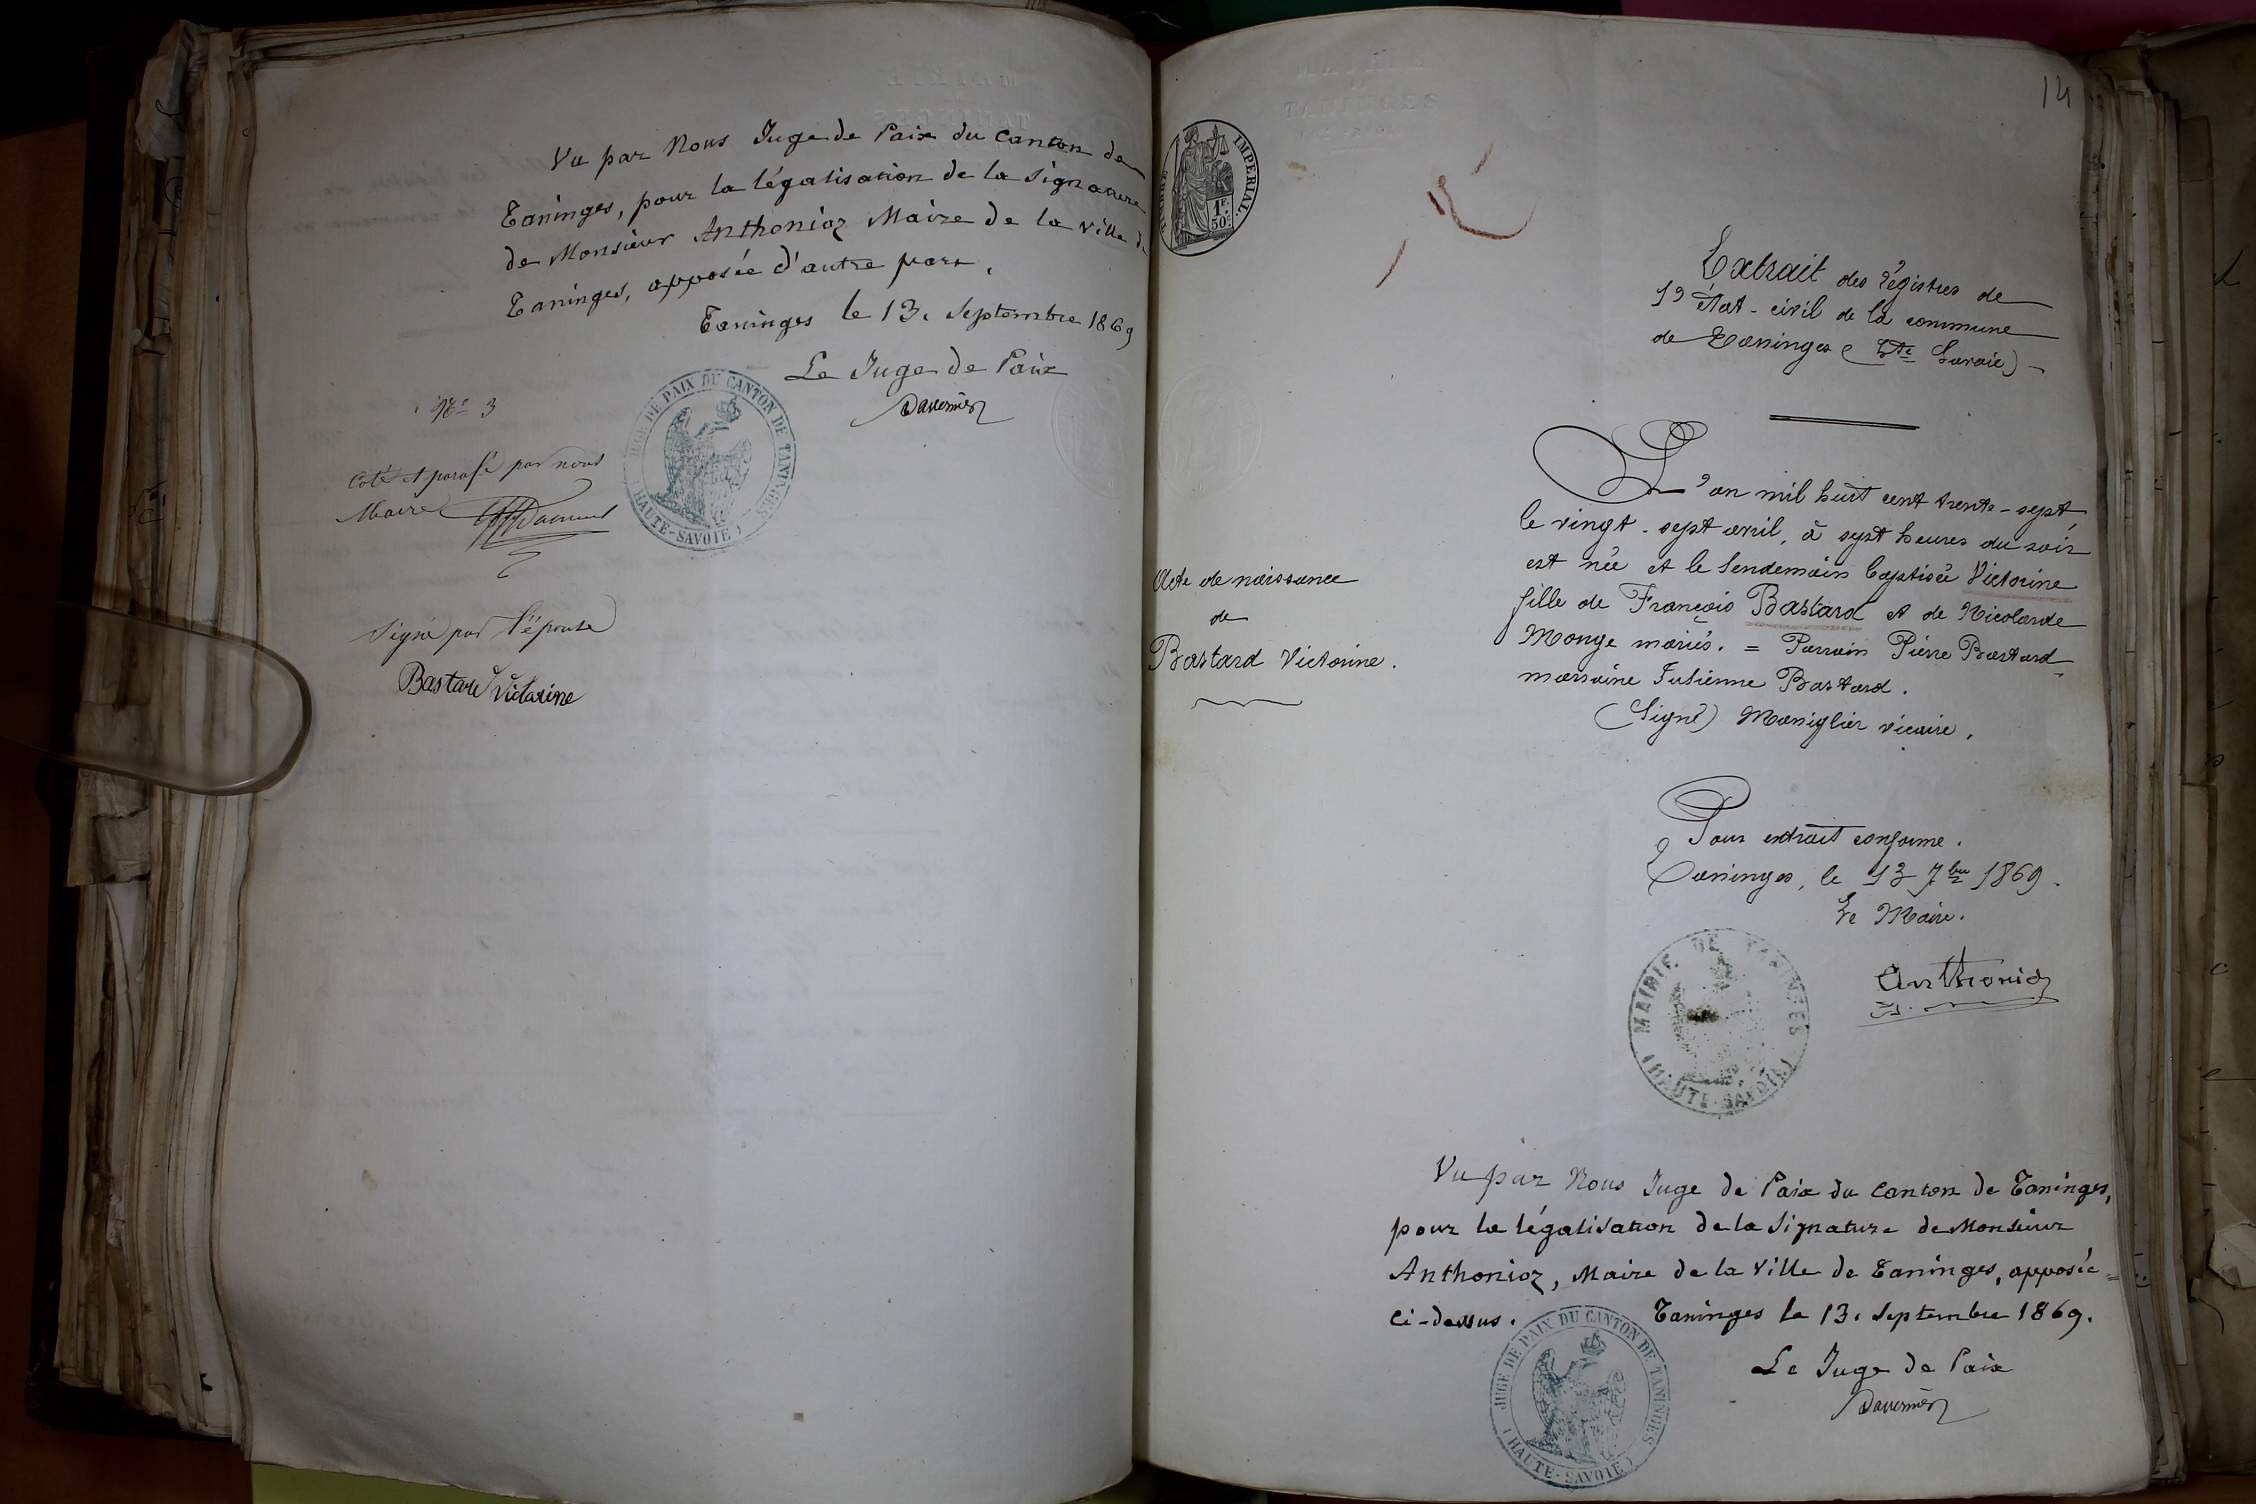 Vu par Nous Juge de Paix du Canton de
Taninges, pour la légalisation de la signature
de Monsieur Anthonioz Maire de la ville de
Taninges, apposée d'autre part.
Taninges le 13. Septembre 1869
Le Juge de Paix
JUGE DE PAIX DU CANTON DE TANINGES
(HAUTE-SAVOIE)
No 3
Coté et parafé par nous
Maire
Signé par l'épouse
Bastard Victorine
14
TIMBRE IMPERIAL.
1F.
50c
Extrait des régistres de
l'État-civil de la commune
de Taninges (Hte Savoie)
L'an mil huit cent trente-sept,
le vingt-sept avril, à sept heures du soir
est née et le lendemain baptisée Victorine
fille de François Bastard et de Nicolarde
Monge mariés. = Parrain Pierre Bastard
marraine Julienne Bastard.
(Signé) Maniglier vicaire.
Acte de naissance
de
Bastard Victorine.
Pour extrait conforme.
Taninges, le 13 7bre 1869.
Le Maire.
Anthonioz
MAIRIE DE TANINGES
(HAUTE-SAVOIE)
Vu par Nous Juge de Paix du Canton de Taninges,
pour la légalisation de la signature de Monsieur
Anthonioz, Maire de la Ville de Taninges, apposée
ci-dessus. Taninges le 13. Septembre 1869.
Le Juge de Paix
JUGE DE PAIX DU CANTON DE TANINGES
(HAUTE-SAVOIE)